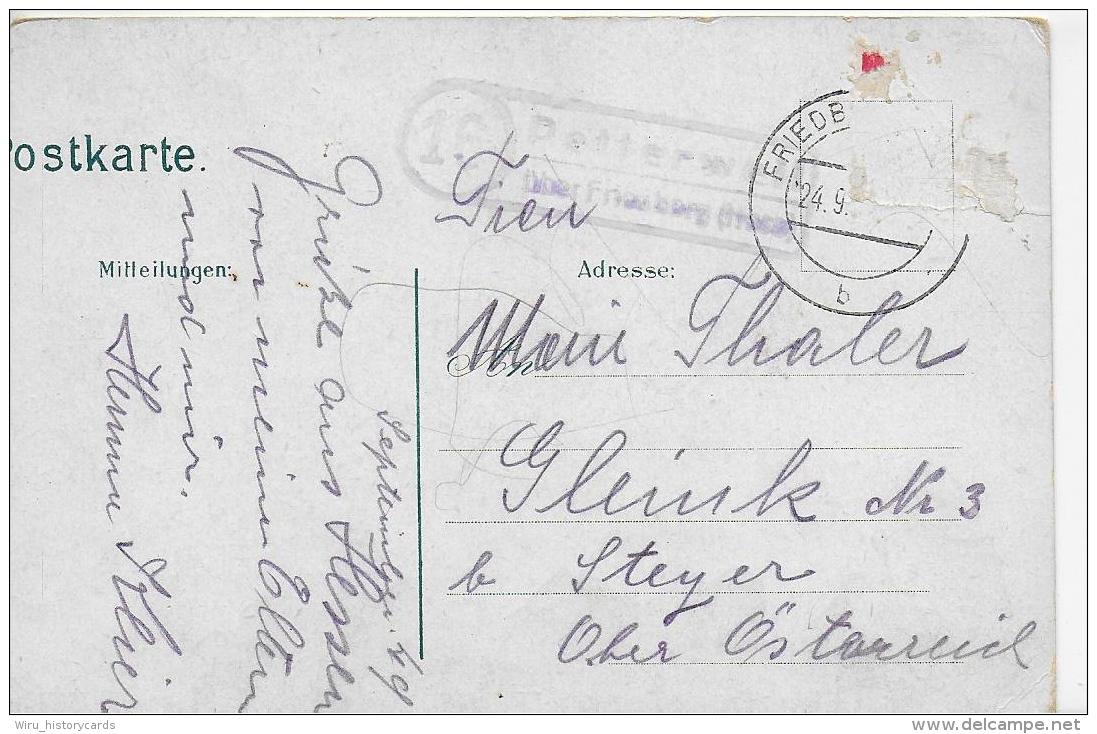 Postkarte.
16
Petterweil
über Friedberg (Hessen)
FRIEDB
24.9.
b
Mitteilungen:
Adresse:
September 49
Grüße aus Hessen
von meinen Eltern
und mir.
An
Thaler
Gleink Nr 3
b Steyer
Ober Österreich
Wiru_historycards
delcampe.net